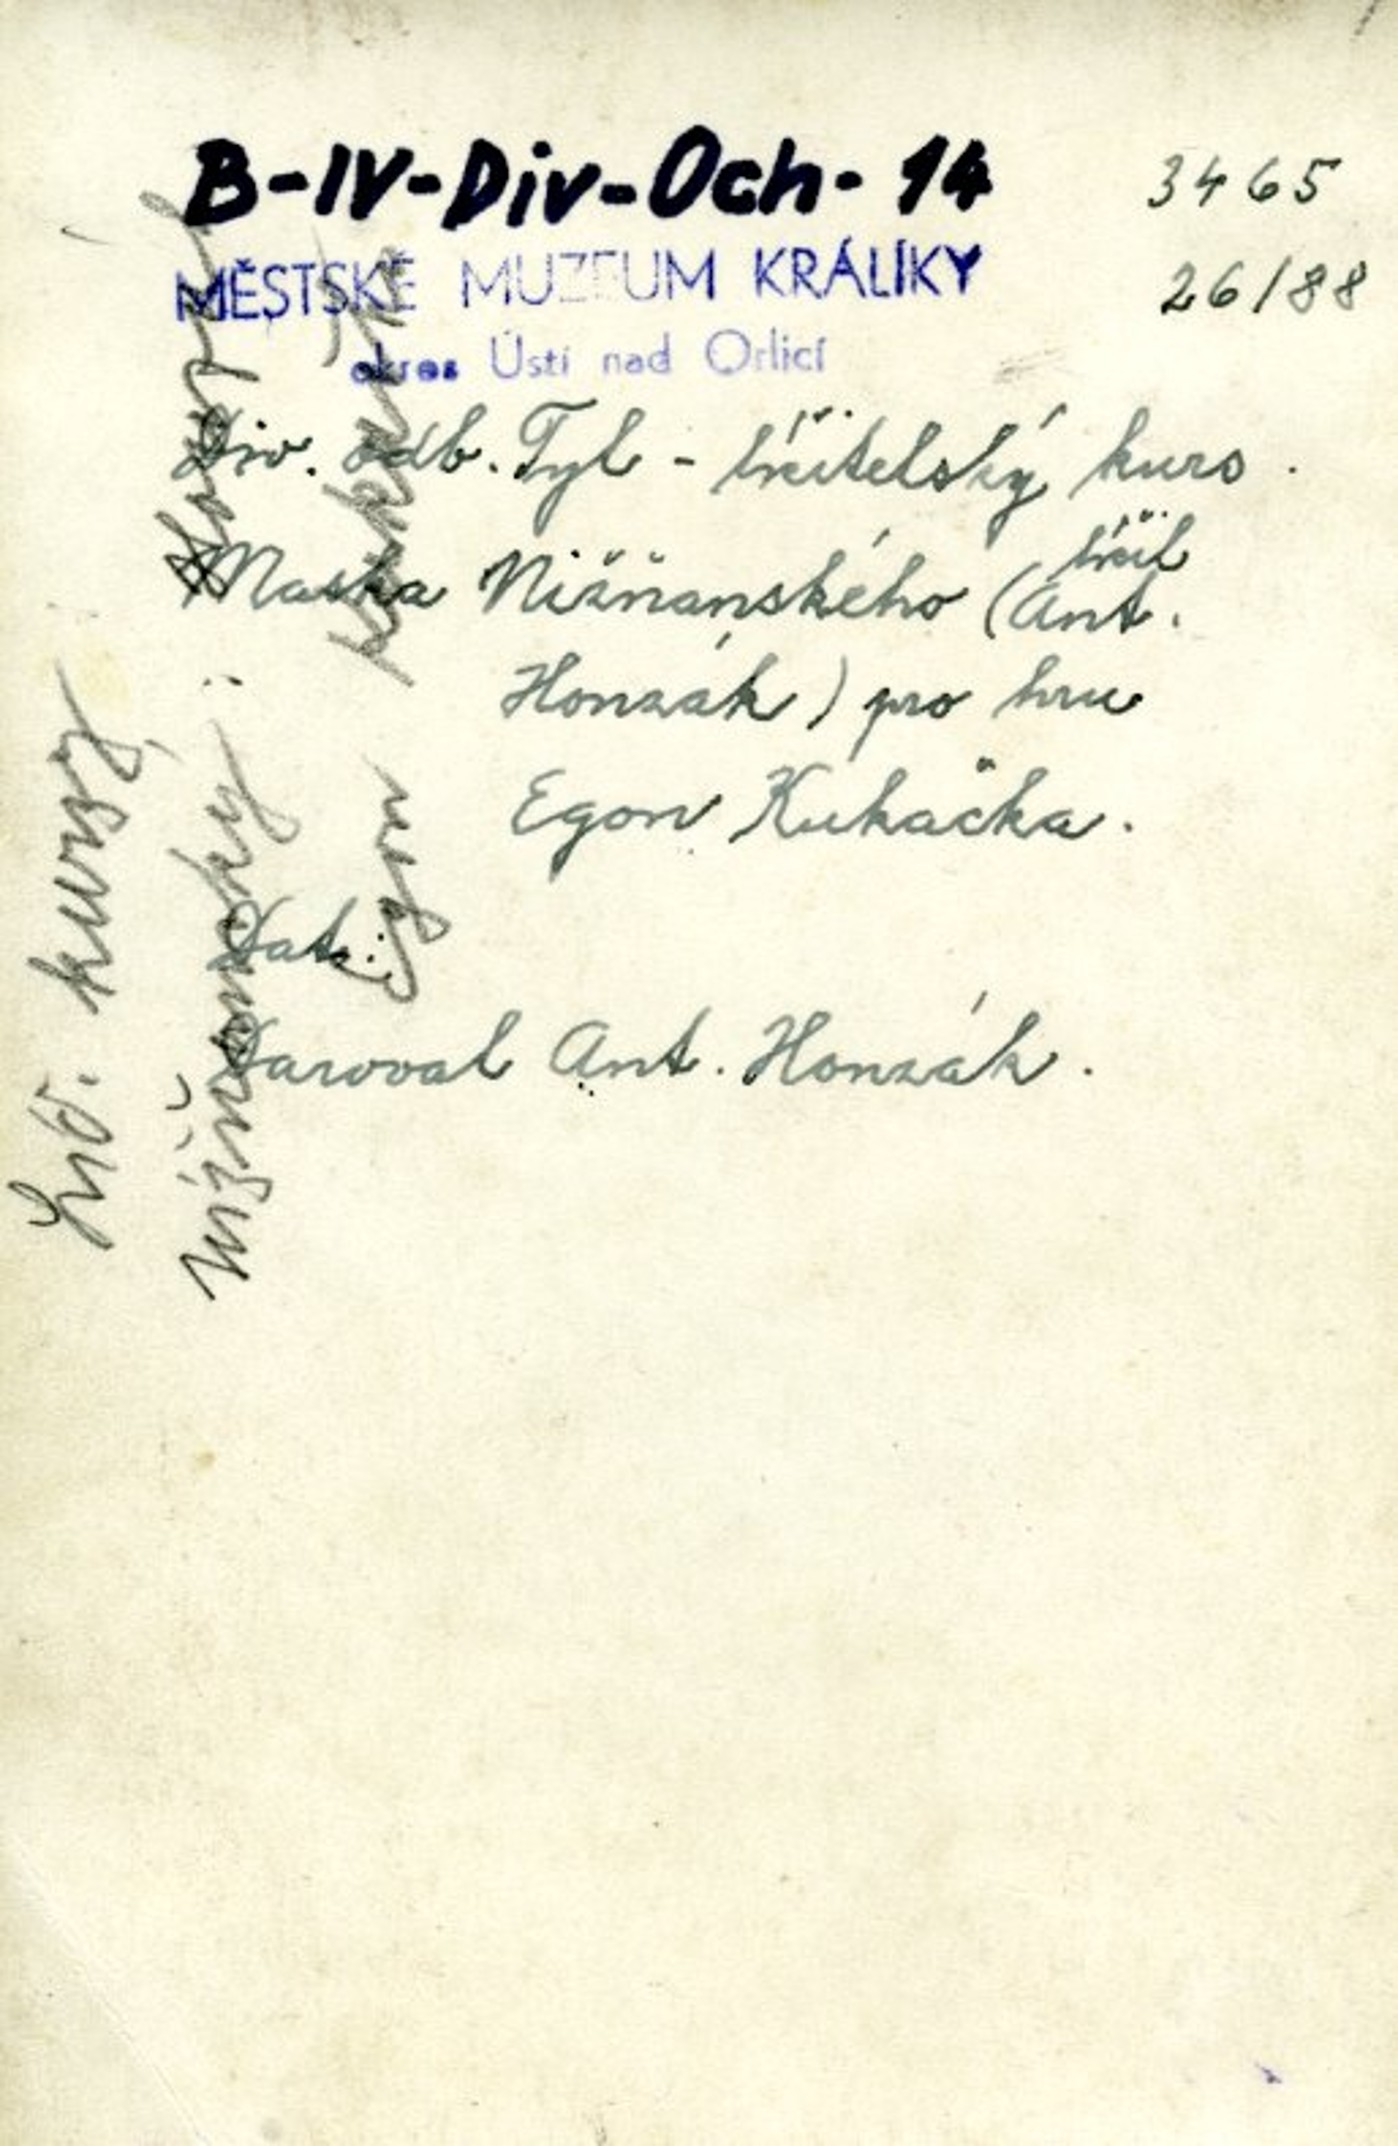 B-IV-Div-Och-14
3465
MĚSTSKÉ MUZEUM KRÁLÍKY
26/88
okres Ústí nad Orlicí
Div. odb. Tyl - líčitelský kurs.
líčil
Maska Nižňanského (Ant.
Honzák) pro hru
Egon Kukačka.
Dat.:
Daroval Ant. Honzák.
Líč. kurzy
Nížňanský: Honzák
Egon Kukačka